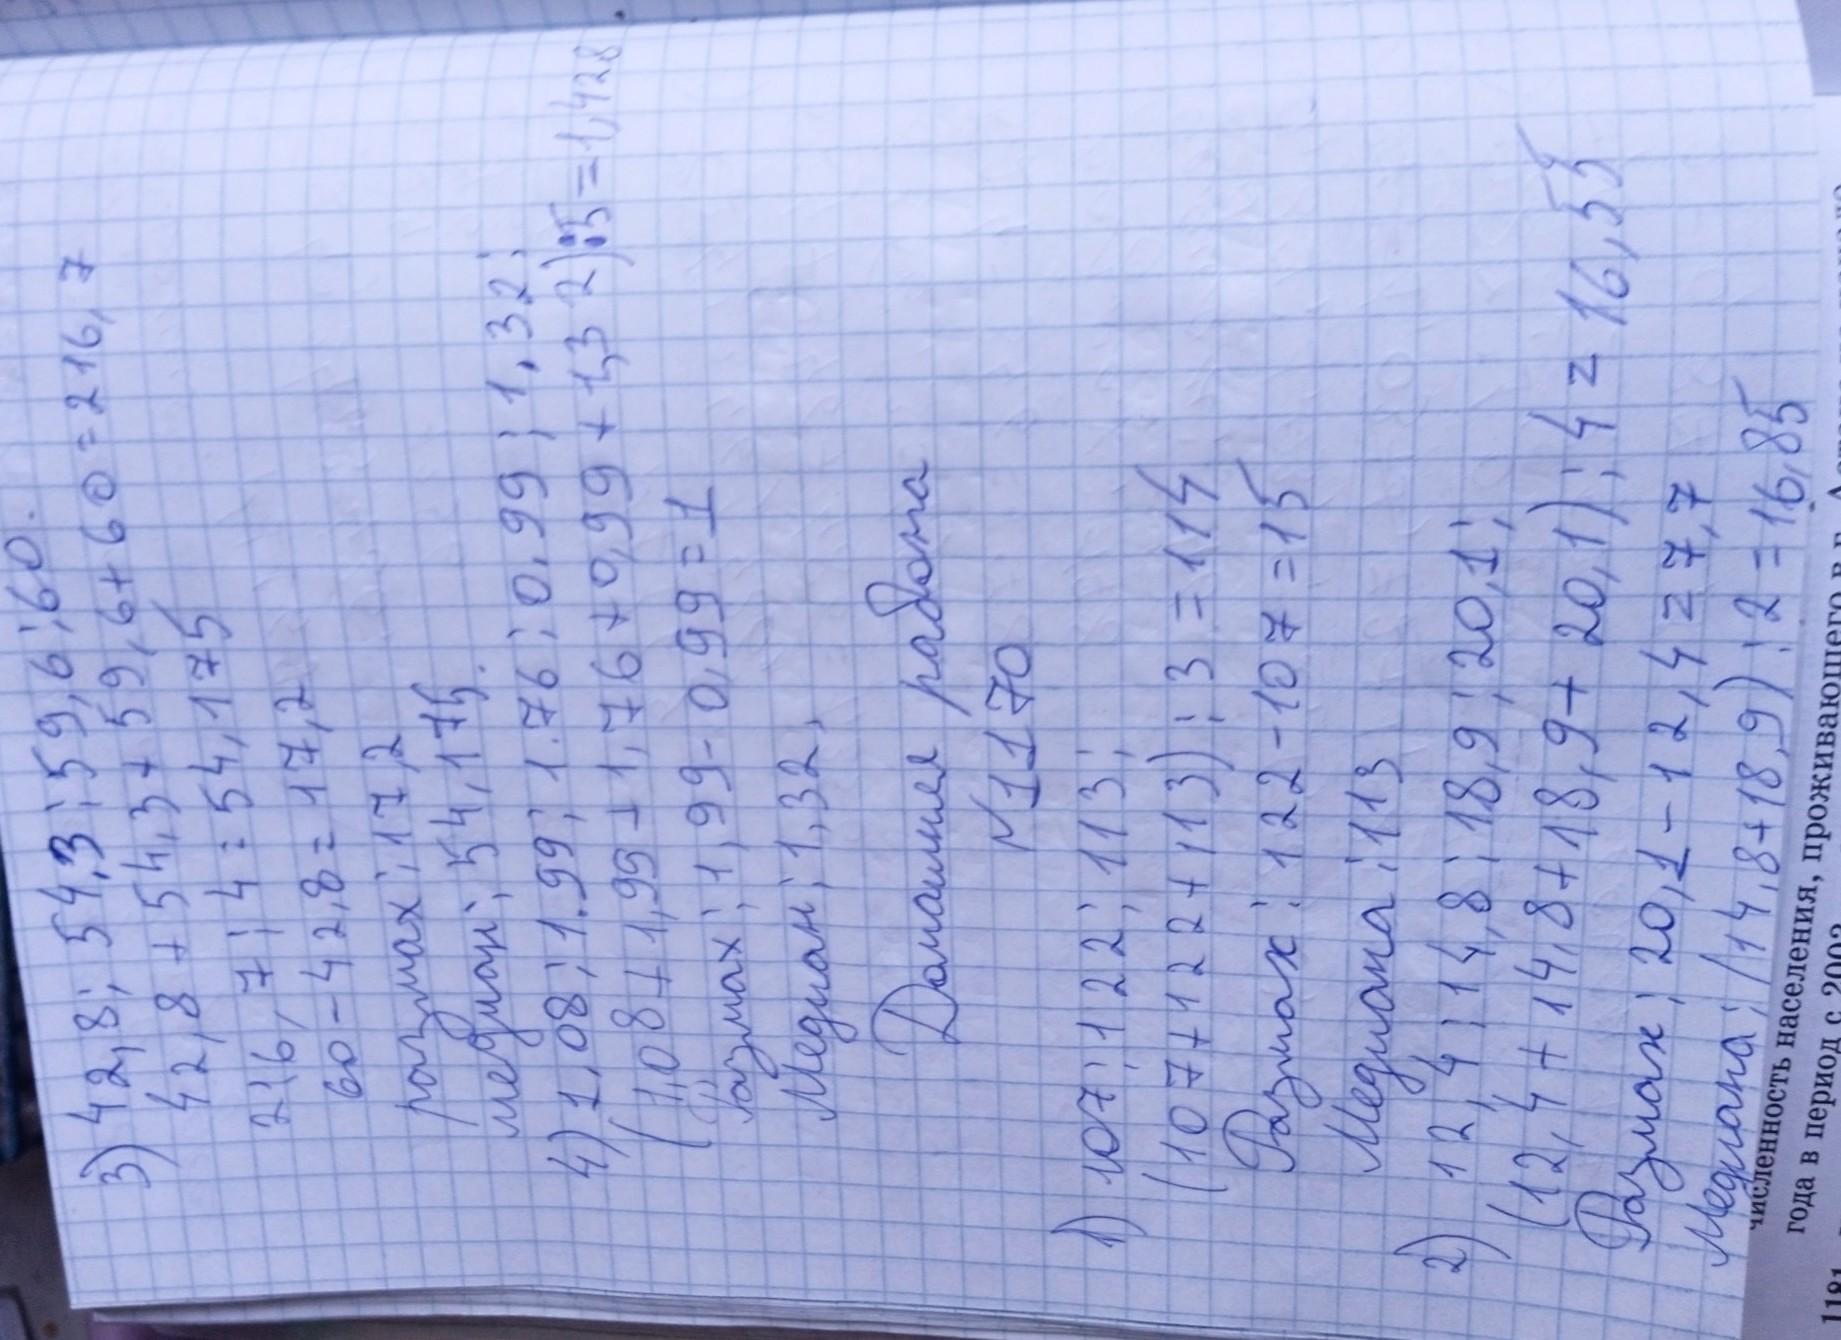 3) 42,8; 54,3; 59,6; 60.
42,8 + 54,3 + 59,6 + 60 = 216,7
216,7 : 4 = 54,175
60 - 42,8 = 17,2
размах: 17,2
медиан: 54,175.
4) 1,08; 1.99; 1.76; 0,99; 1,32;
(1,08 + 1,99 + 1,76 + 0,99 + 1,32) : 5 = 1,428
Размах: 1,99 - 0,99 = 1
Медиан: 1,32,
Домашняя работа
N1170
1) 107; 122; 113;
(107 + 122 + 113) : 3 = 114
Размах: 122 - 107 = 15
Медиана: 113
2) 12,4; 14,8; 18,9; 20,1;
(12,4 + 14,8 + 18,9 + 20,1) : 4 = 16,55
Размах: 20,1 - 12,4 = 7,7
Медиана: (14,8 + 18,9) : 2 = 16,85
численность населения, проживающего в г.
года в период с 2003
1181